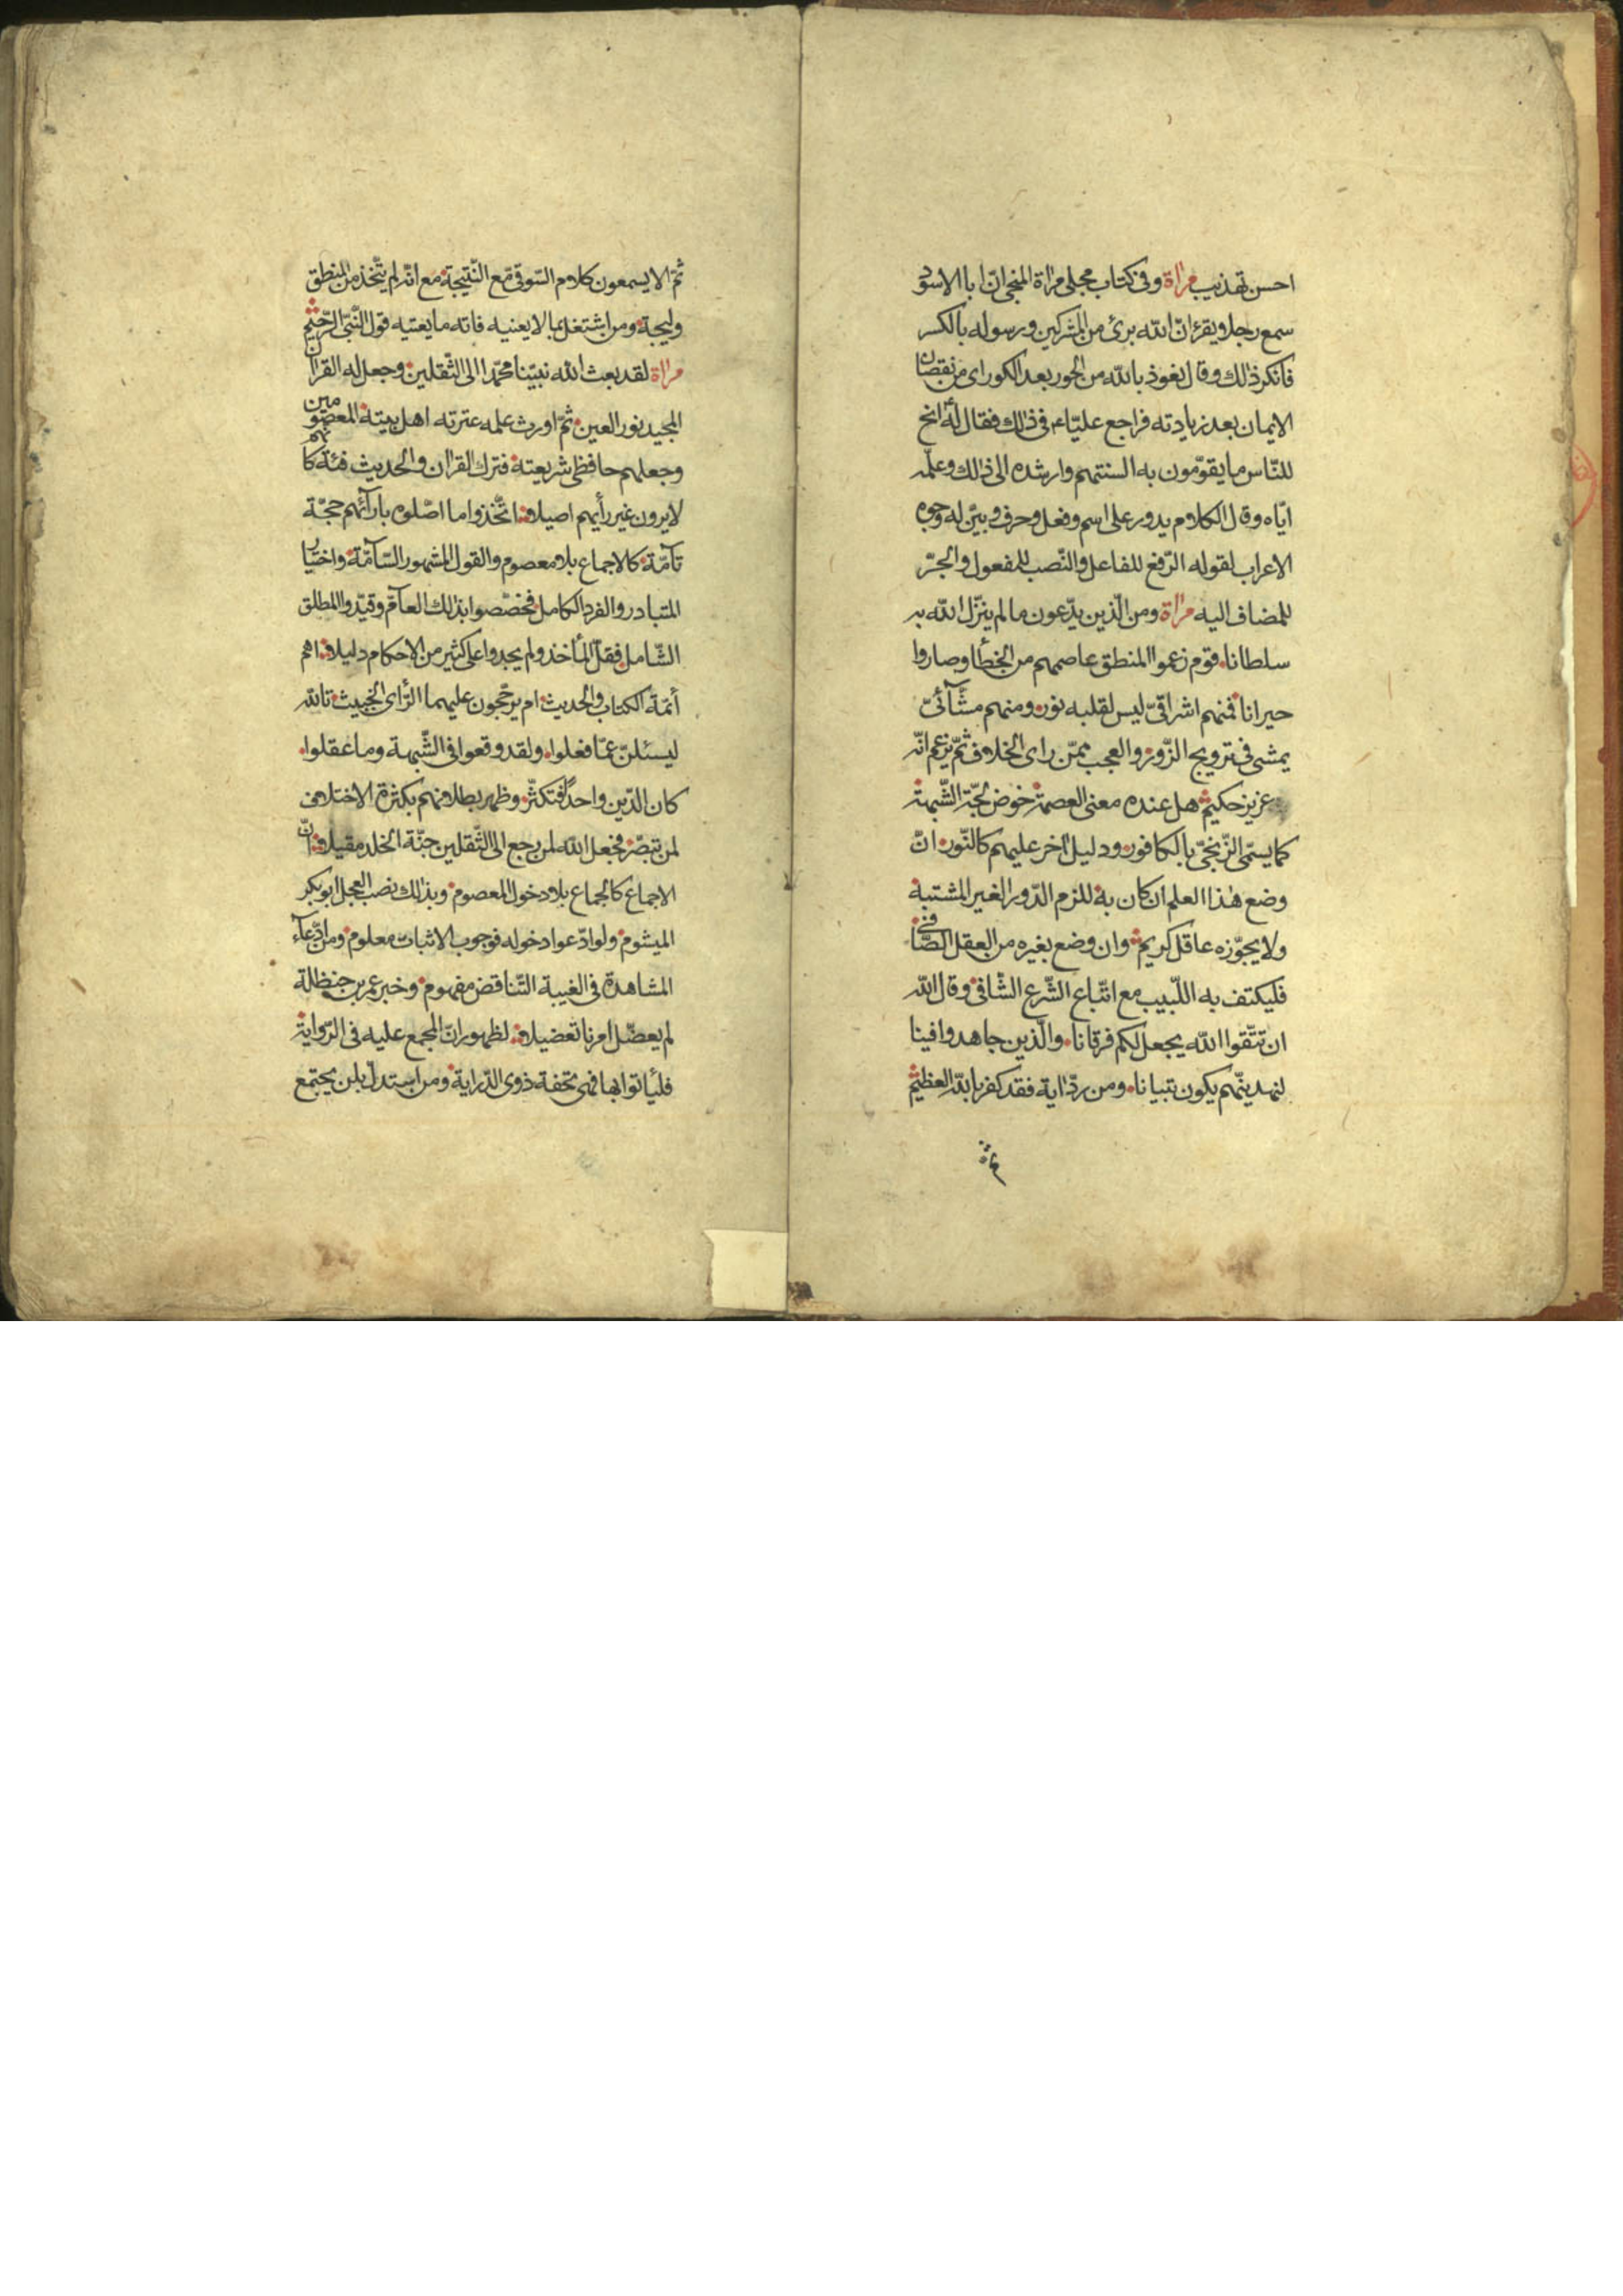 احسن تهذيب مرآة وفى كتاب مجلى مرآة المنجى انّ ابا الاسود
سمع رجلا يقرء انّ اللّه برئ من المشركين ورسوله بالكسر
فانكر ذلك وقال نعوذ باللّه من الحور بعد الكور اى من نقصان
الايمان بعد زيادته فراجع عليّاء فى ذلك فقال له انح
للنّاس ما يقوّمون به السنتهم وارشده الى ذلك وعلّمه
ايّاه وقال الكلام يدور على اسم وفعل وحرف وبيّن له وجوه
الاعراب لقوله الرّفع للفاعل والنّصب للمفعول والجرّ
للمضاف اليه مرآة ومن الّذين يدّعون ما لم ينزّل اللّه به
سلطانا قوم زعموا المنطق عاصمهم من الخطأ وصاروا
حيرانا فمنهم اشراقىّ ليس لقلبه نور ومنهم مشّآئىّ
يمشى فى ترويج الزّور والعجب ممّن راى الخلاف ثمّ يزعم انّه
عزيز حكيم هل عنده معنى العصمة خوض لجّة الشّبهة
كما يسمّى الزّنجىّ بالكافور ودليل اخر عليهم كالنّور انّ
وضع هذا العلم ان كان به للزم الدّور الغير المشتبه
ولا يجوّزه عاقل كريم وان وضع بغيره من العقل الصّافى
فليكتف به اللّبيب مع اتّباع الشّرع الشّافى وقال اللّه
ان تتّقوا اللّه يجعل لكم فرقانا والّذين جاهدوا فينا
لنهدينّهم يكون تبيانا ومن ردّ اية فقد كفر باللّه العظيم
ثمّ
ثمّ الا يسمعون كلام السّوقى مع النّتيجة مع انّه لم يتّخذ من المنطق
وليجة ومن اشتغل بما لا يعنيه فاته ما يعنيه قول النّبىّ الرّحيم
مرآة لقد بعث اللّه نبيّنا محمّدا الى الثّقلين وجعل له القران
المجيد نور العين ثمّ اورث علمه عترته اهل بيته المعصومين
وجعلهم حافظى شريعته فترك القران والحديث فئة كانّهم
لا يرون غير رأيهم اصيلا اتّخذوا ما اصّلوه بارآئهم حجّة
تآمّة كالاجماع بلا معصوم والقول المشهور السّآمّة واختيار
المتبادر والفرد الكامل فخصّصوا بذلك العآمّ وقيّدوا المطلق
الشّامل فقلّ المأخذ ولم يجدوا على كثير من الاحكام دليلا اهم
أئمّة الكتاب والحديث ام يرجّحون عليهما الرّاى الخبيث تاللّه
ليسئلنّ عمّا فعلوا ولقد وقعوا فى الشّبهة وما عقلوا
كان الدّين واحدا فتكثّر وظهر بطلانهم بكثرة الاختلاف
لمن تبصّر فجعل اللّه لمن رجع الى الثّقلين جنّة الخلد مقيلا انّ
الاجماع كالجماع بلا دخول المعصوم وبذلك نصب العجل ابوبكر
الميشوم ولو ادّعوا دخوله فوجوب الاثبات معلوم ومن ادّعآء
المشاهدة فى الغيبة التّناقض مفهوم وخبر عمر بن حنظلة
لم يعضّل امرنا تعضيلا لظهور انّ المجمع عليه فى الرّواية
فليأتوا بها فهى تحفة ذوى الدّراية ومن استدلّ بلن يجتمع